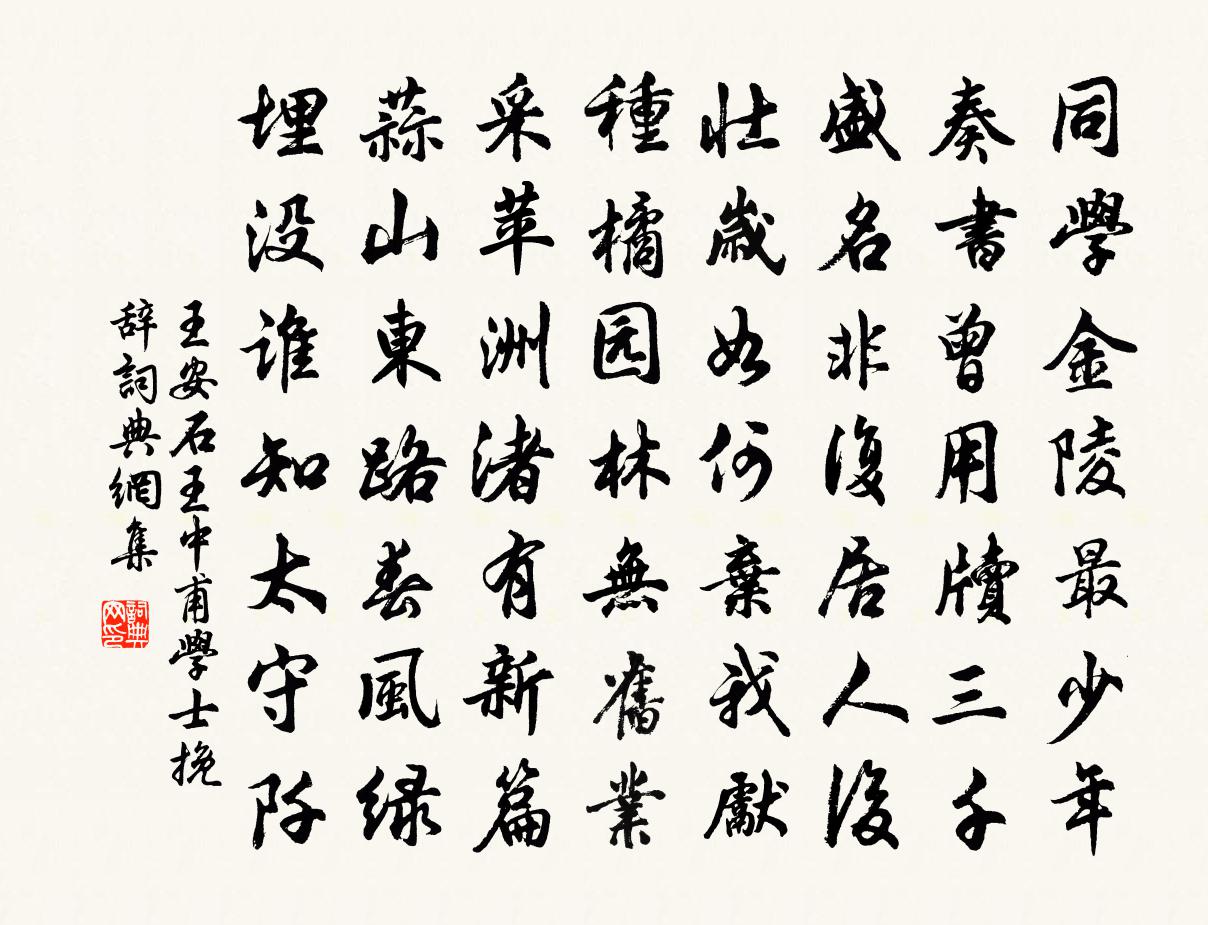 同學金陵最少年
奏書曾用牘三千
盛名非復居人後
壯歲如何棄我獻
種橘园林無舊業
采苹洲渚有新篇
蒜山東路春風绿
埋没誰知太守阡
王安石王中甫學士挽
辞詞典網集
詞典
网印